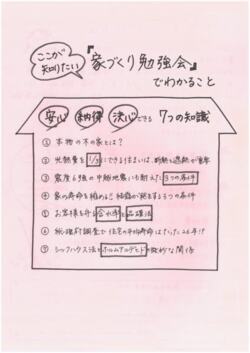 ここが
知りたい
『家づくり勉強会』
でわかること
安心 納得 決心できる 7つの知識
① 本物の木の家とは？
② 光熱費を1/3にできる住まいは、断熱と遮熱が重要
③ 震度6強の中越地震にも耐えた3つの条件
④ 家の寿命を縮める!! 結露が発生する3つの条件
⑤ お客様を守る含水率と品確法
⑥ 総理府調査で住宅の平均寿命はたった26年!?
⑦ シックハウス法とホルムアルデヒドの微妙な関係